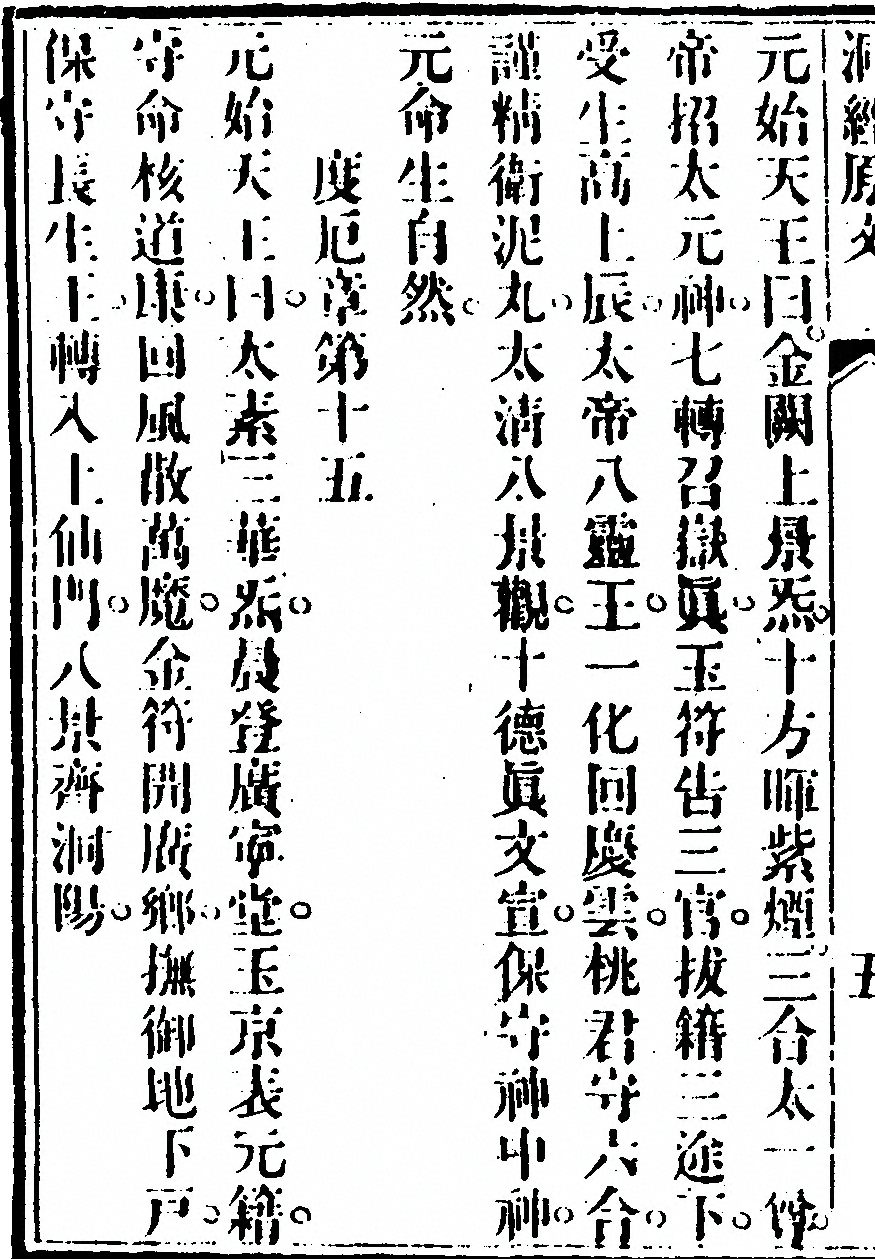 洞經原文 五
元始天王曰金闕上景炁十方暉紫煙三合太一
帝招太元神七轉召嶽眞玉符告三官拔籍三途下
受生高上辰太帝八靈王一化回慶雲桃君守六合
謹精衛泥丸太清八景觀十德眞文宣保守神中神
元命生自然
度厄章第十五
元始天王曰太素三華炁晨登廣寧堂玉京表元籍
守命核道康回風散萬魔金符開廣鄉撫御地下戸
保守長生王轉入上仙門八景齊洞陽